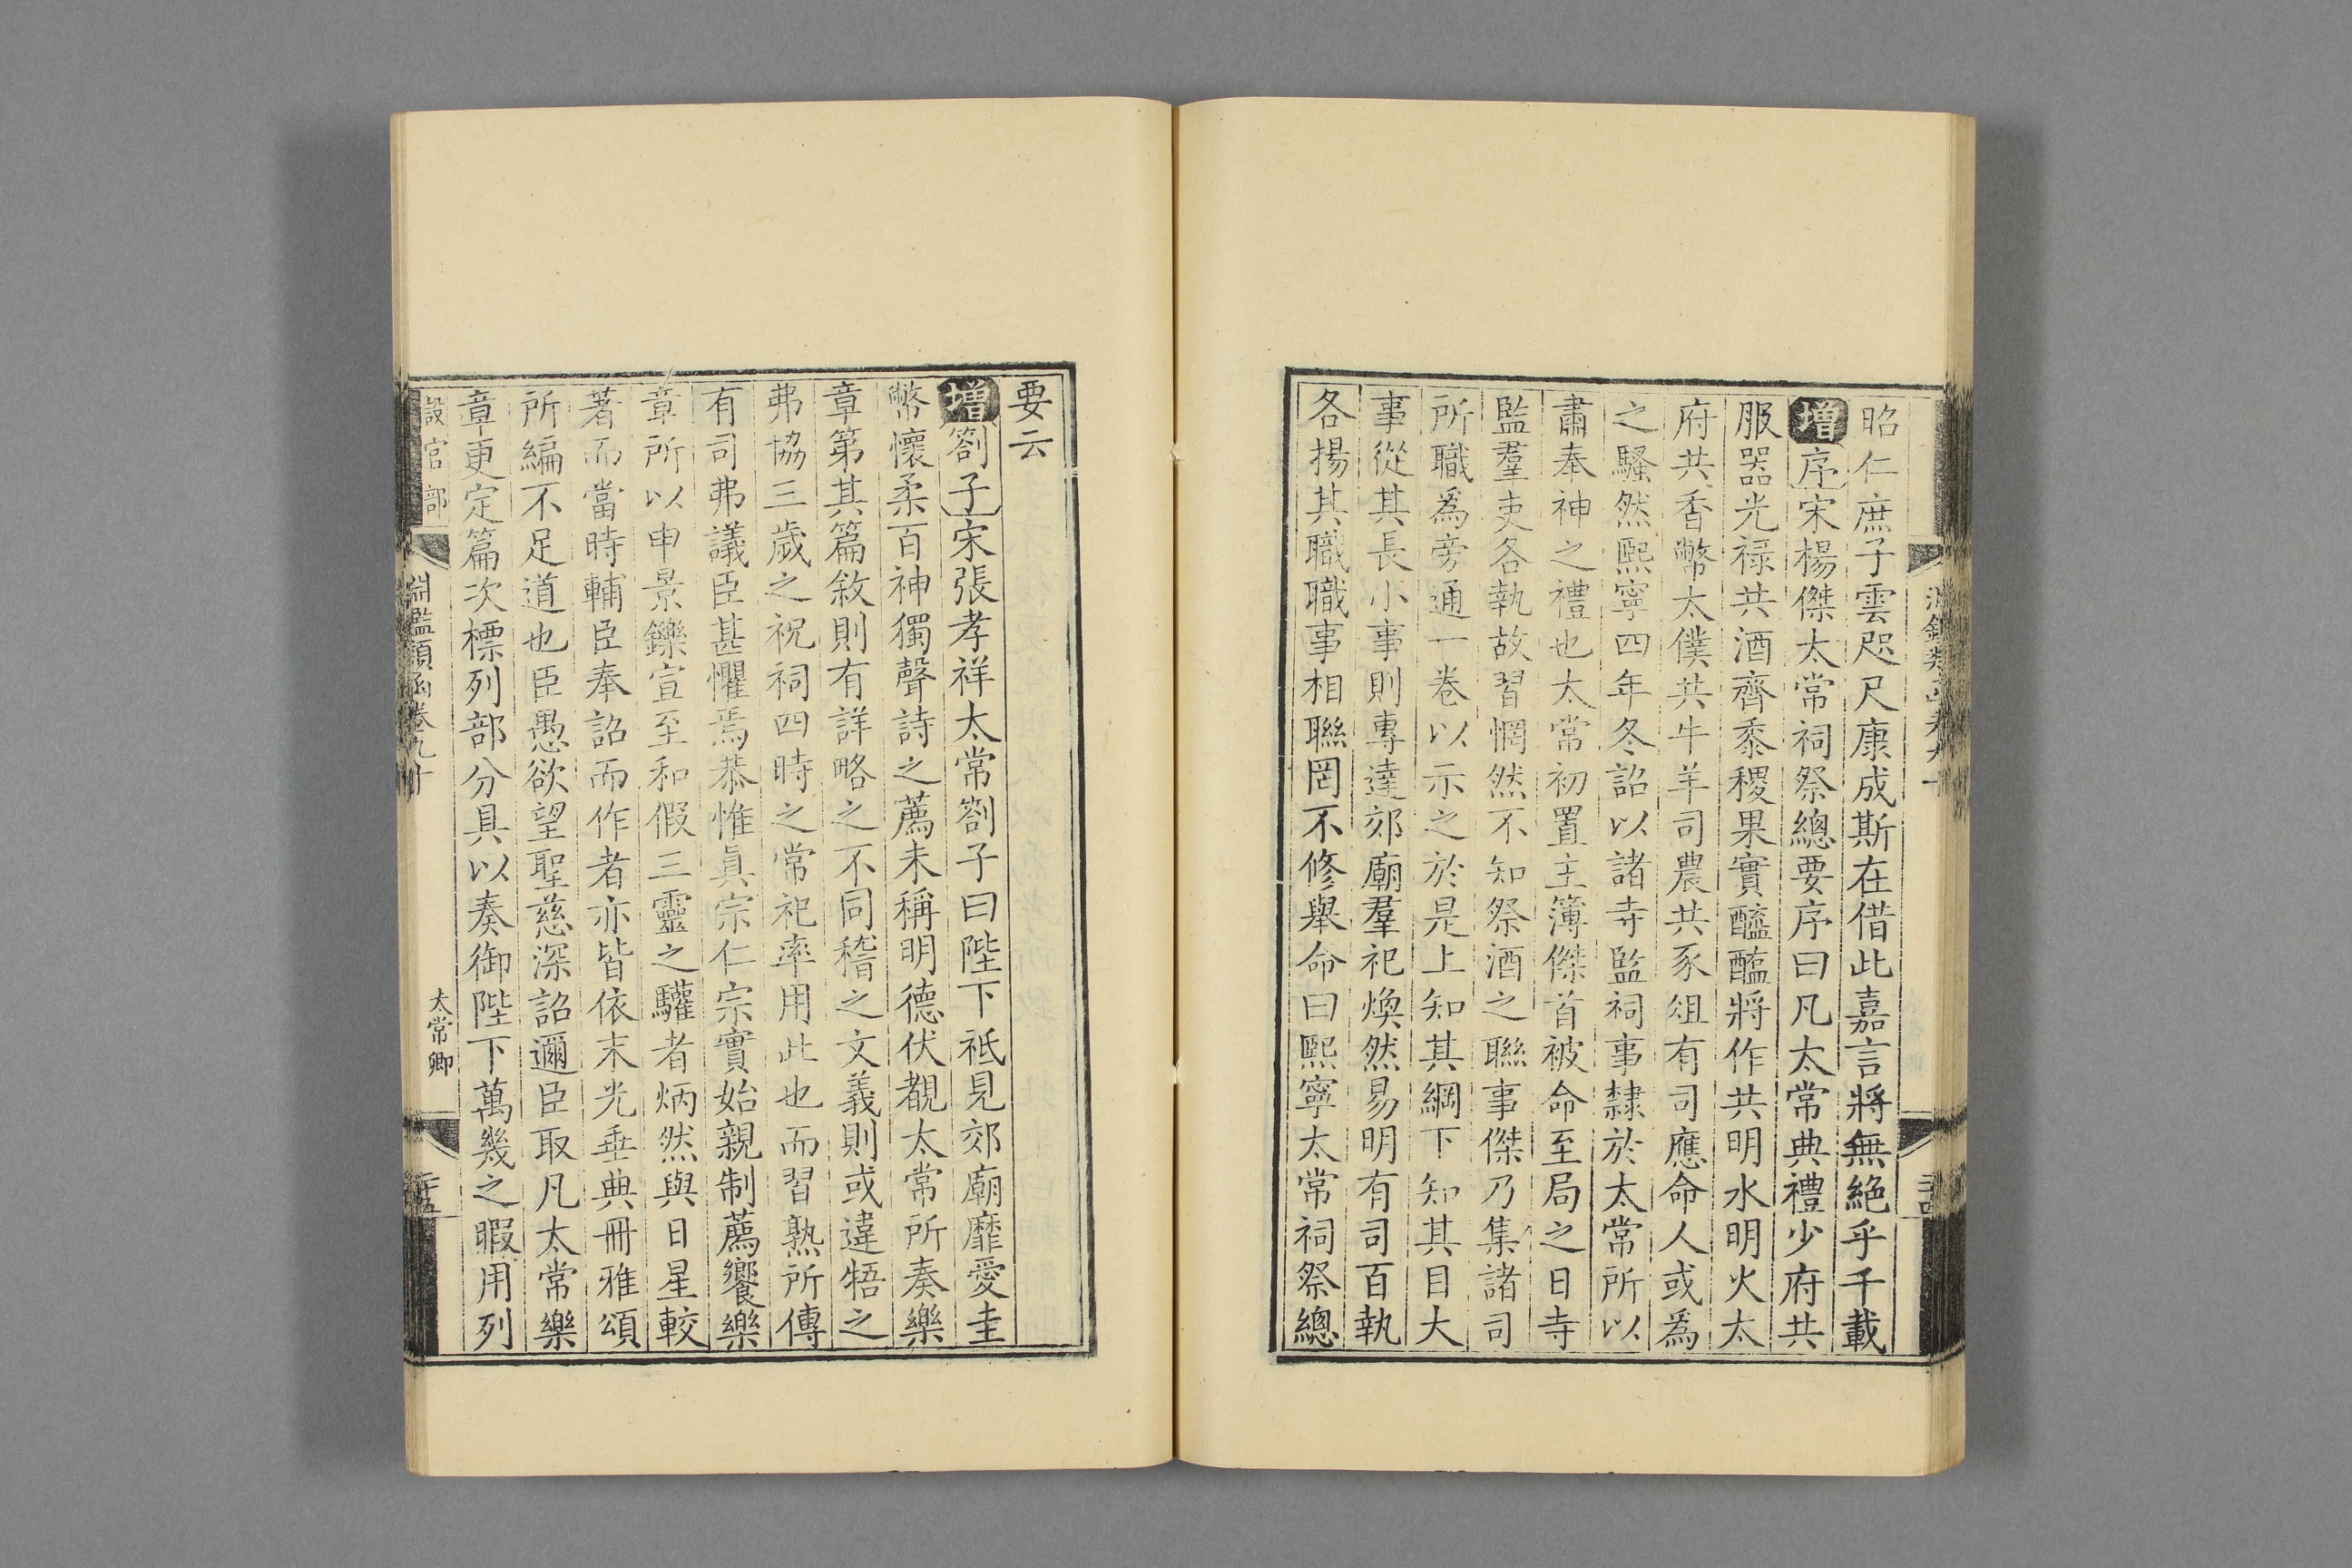 昭仁庶子雲咫尺康成斯在借此嘉言將無絕乎千載
增序宋楊傑太常祠祭總要序曰凡太常典禮少府共
服器光禄共酒齊黍稷果實醯醢將作共明水明火太
府共香幣太僕共牛羊司農共豕俎有司應命人或爲
之騷然熙寧四年冬詔以諸寺監祠事隸於太常所以
肅奉神之禮也太常初置主簿傑首被命至局之日寺
監羣吏各執故習惘然不知祭酒之聯事傑乃集諸司
所職爲旁通一卷以示之於是上知其綱下知其目大
事從其長小事則專達郊廟羣祀煥然易明有司百執
各揚其職職事相聯罔不修舉命曰熙寧太常祠祭總
要云
增劄子宋張孝祥太常劄子曰陛下祗見郊廟靡愛圭
幣懷柔百神獨聲詩之薦未稱明德伏覩太常所奏樂
章第其篇敘則有詳略之不同稽之文義則或違牾之
弗協三歲之祝祠四時之常祀率用此也而習熟所傳
有司弗議臣甚懼焉恭惟眞宗仁宗實始親制薦饗樂
章所以申景鑠宣至和假三靈之驩者炳然與日星較
著而當時輔臣奉詔而作者亦皆依末光垂典冊雅頌
所編不足道也臣愚欲望聖慈深詔邇臣取凡太常樂
章更定篇次標列部分具以奏御陛下萬幾之暇用列
設官部
淵鑑類函卷九十
太常卿